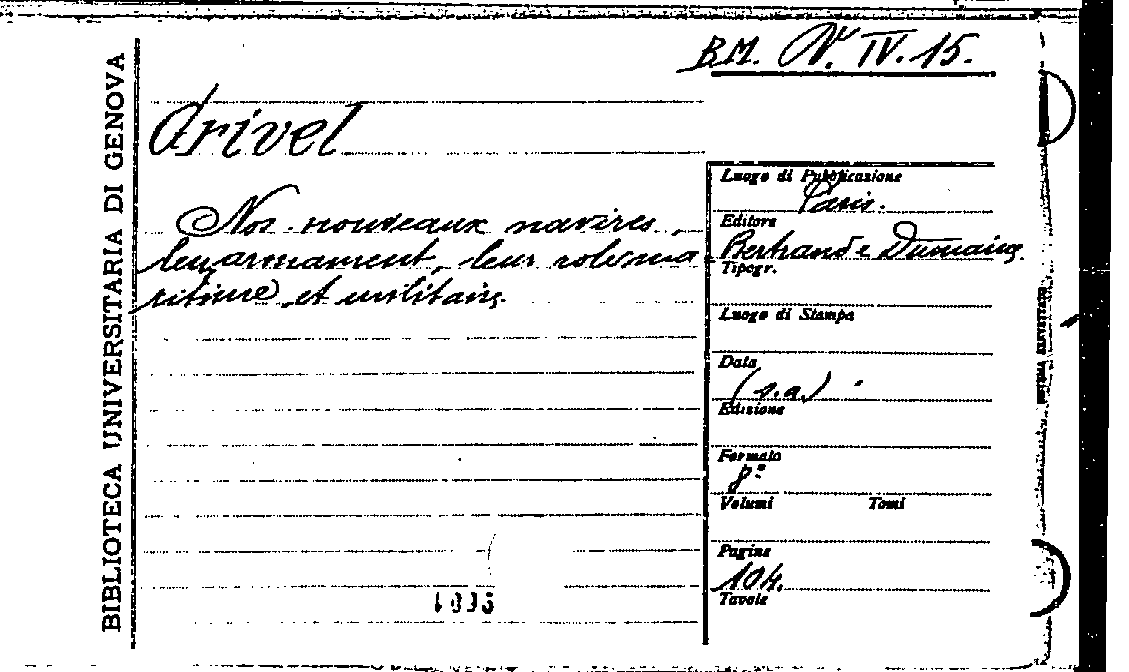 B.M. N. IV. 15.
BIBLIOTECA UNIVERSITARIA DI GENOVA
Grivel
Nos nouveaux navires,
leur armament, leur role ma
ritime et militaire.
Luogo di Pubblicazione
Paris.
Editore
Bertrand e Dumaine
Tipogr.
Luogo di Stampa
Data
(s.a.)
Edizione
Formato
8º
Volumi Tomi
Pagine
104.
Tavole